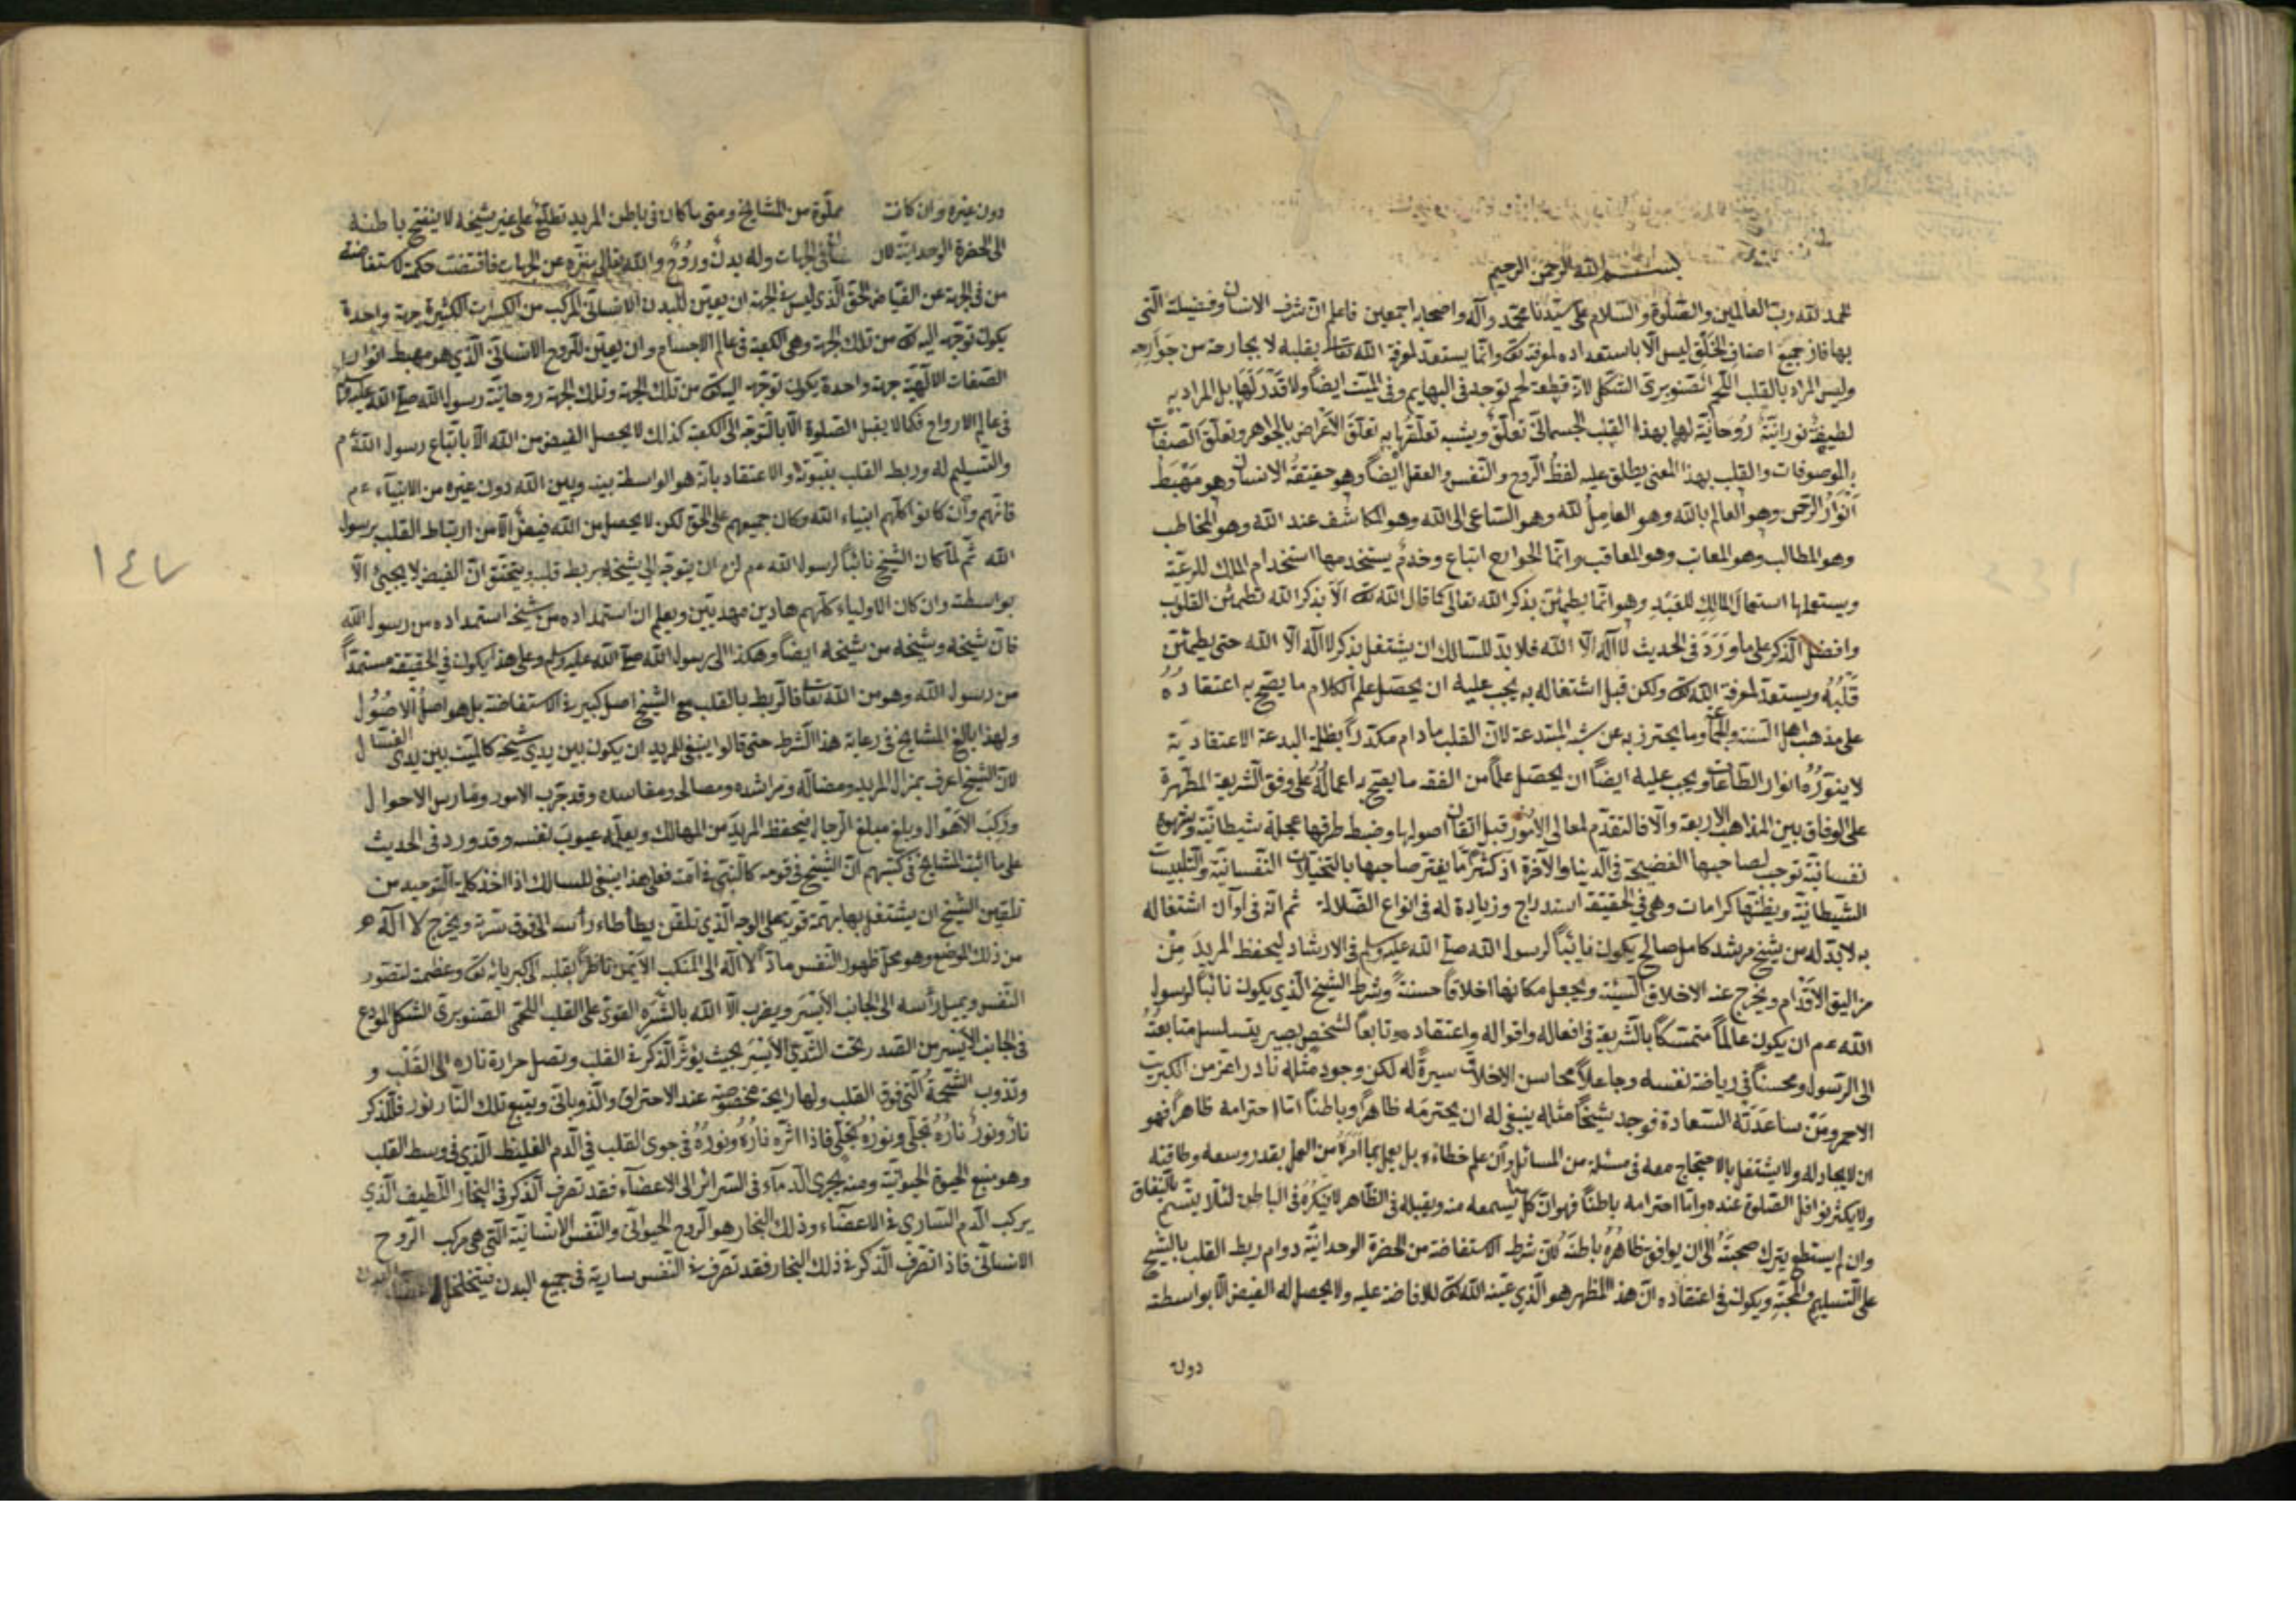 بسم الله الرحمن الرحيم
الحمد لله رب العالمين والصلوة والسلام على سيدنا محمد وآله واصحابه اجمعين فاعلم ان شرف الانسان وفضيلته التى
بها فاز جميع اصناف الخلق ليس الا باستعداده لمعرفة الله تع وانما يستعد لمعرفة الله تعالى بقلبه لا بجارحة من جوارحه
وليس المراد بالقلب اللحم الصنوبرى الشكل لانه قطعة لحم توجد فى البهايم وفى الميت ايضا ولا قدر لها بل المراد به
لطيفة نورانية روحانية لها بهذا القلب الجسمانى تعلق ويشبه تعلقها به تعلق الاعراض بالجواهر وتعلق الصفات
بالموصوفات والقلب بهذا المعنى يطلق عليه لفظ الروح والنفس والعقل ايضا وهو حقيقة الانسان وهو مهبط
انوار الرحمن وهو العالم بالله وهو العامل لله وهو الساعى الى الله وهو المكاشف عند الله وهو المخاطب
وهو المطالب وهو المعاتب وهو المعاقب وانما الجوارح اتباع وخدم يستخدمها استخدام الملك للرعية
ويستعملها استعمال المالك للعبيد وهو انما يطمئن بذكر الله تعالى كما قال الله تع الا بذكر الله تطمئن القلوب
وافضل الذكر على ما ورد فى الحديث لا اله الا الله فلا بد للسالك ان يشتغل بذكر لا اله الا الله حتى يطمئن
قلبه ويستعد لمعرفة الله تع ولكن قبل اشتغاله به يجب عليه ان يحصل علم الكلام ما يصح به اعتقاده
على مذهب اهل السنة والجماعة وما يحترز به عن شبه المبتدعة لان القلب ما دام مكدرا بظلمة البدعة الاعتقادية
لا ينوره انوار الطاعات ويجب عليه ايضا ان يحصل علما من الفقه ما يصح به اعماله على وفق الشريعة المطهرة
على الوفاق بين المذاهب الاربعة والا فالتقدم لمعالى الامور قبل اتقان اصولها وضبط طرقها عجلة شيطانية وشهوة
نفسانية توجب لصاحبها الفضيحة فى الدنيا والآخرة اذ كثيرا ما يغتر صاحبها بالتخيلات النفسانية والتلبيسات
الشيطانية ويظنها كرامات وهى فى الحقيقة استدراج وزيادة له فى انواع الضلالة ثم انه فى اوان اشتغاله
به لا بد له من شيخ مرشد كامل صالح يكون نايبا لرسول الله صلى الله عليه وسلم فى الارشاد ليحفظ المريد من
مزاليق الاقدام ويخرج عنه الاخلاق السيئة ويجعل مكانها اخلاقا حسنة وشرط الشيخ الذى يكون نائبا لرسول
الله عم ان يكون عالما متمسكا بالشريعة فى افعاله واقواله واعتقاده وتابعا لشخص بصير يتسلسل متابعته
الى الرسول ومحسنا فى رياضة نفسه وجاعلا محاسن الاخلاق سيرة له لكن وجود مثله نادر اعز من الكبريت
الاحمر ومن ساعدته السعادة فوجد شيخا مثله ينبغى له ان يحترمه ظاهرا وباطنا اما احترامه ظاهرا فهو
ان لا يجادله ولا يشتغل بالاحتجاج معه فى مسئلة من المسائل وان علم خطاءه بل يعمل بما امره من العمل بقدر وسعه وطاقته
ولا يكثر نوافل الصلوة عنده واما احترامه باطنا فهو ان كل ما يسمعه منه ويقبله فى الظاهر لا ينكره فى الباطن لئلا يتسم بالنفاق
وان لم يستطع يترك صحبته الى ان يوافق ظاهره باطنه لان شرط الاستفاضة من الحضرة الوحدانية دوام ربط القلب بالشيخ
على التسليم والمحبة ويكون فى اعتقاده ان هذا المظهر هو الذى عينه الله تع للافاضة عليه ولا يحصل له الفيض الا بواسطته
دون
دون غيره وان كانت مملوة من المشايخ ومتى ما كان فى باطن المريد تطلع على غير شيخه لا ينفتح باطنه
الى الحضرة الوحدانية لان فى الجهات وله بدن وروح والله تعالى منزه عن الجهات فاقتضت حكمة استفاضة
من فى الجهة عن الفياض الحق الذى ليس فى الجهة ان يعين للبدن الانسانى المركب من الكسرات الكثيرة جهة واحدة
يكون توجهه اليه تع من تلك الجهة وهى الكعبة فى عالم الاجسام وان يعين للروح الانسانى الذى هو مهبط انوار
الصفات الالهية جهة واحدة يكون توجهه اليه تع من تلك الجهة وتلك الجهة روحانية رسول الله صلى الله عليه وسلم
فى عالم الارواح فكما لا يقبل الصلوة الا بالتوجه الى الكعبة كذلك لا يحصل الفيض من الله الا باتباع رسول الله عم
والتسليم له وربط القلب بنبوته والاعتقاد بانه هو الواسطة بينه وبين الله دون غيره من الانبياء عم
فانهم وان كانوا كلهم انبياء الله وكان جميعهم على الحق لكن لا يحصل من الله فيض الا من ارتباط القلب برسول
الله ثم لما كان الشيخ نائبا لرسول الله عم لزم ان يتوجه الى شيخه بربط قلبه ويتحقق ان الفيض لا يجيئ الا
بواسطته وان كان الاولياء كلهم هادين مهديين ويعلم ان استمداده من شيخه استمداده من رسول الله
فان شيخه وشيخه من شيخه ايضا وهكذا الى رسول الله صلى الله عليه وسلم وعلى هذا يكون فى الحقيقة مستمدا
من رسول الله وهو من الله تعالى فالربط بالقلب مع الشيخ اصل كبير فى الاستفاضة بل هو اصل الاصول
ولهذا بالغ المشايخ فى رعاية هذا الشرط حتى قالوا ينبغى للمريد ان يكون بين يدى شيخه كالميت بين يدى الغسال
لان الشيخ اعرف بمزال المريد ومضاله ومراشده ومصالحه ومفاسده وقد جرب الامور ومارس الاحوال
وركب الاهوال وبلغ مبلغ الرجال فيحفظ المريد من المهالك ويعلمه عيوب نفسه وقد ورد فى الحديث
على ما اثبته المشايخ فى كتبهم ان الشيخ فى قومه كالنبى فى امته فعلى هذا ينبغى للسالك اذا اخذ كلمة التوحيد من
تلقين الشيخ ان يشتغل بها بهمة قوية على الوجه الذى تلقن يطأطاء رأسه الى فوق سرته ويخرج لا اله
من ذلك الموضع وهو محل ظهور النفس مادا لا اله الى المنكب الايمن ناظرا بقلبه الى كبريائه تع وعظمته لتصور
النفس ويميل رأسه الى الجانب الايسر ويضرب الا الله بالشدة القوى على القلب اللحمى الصنوبرى الشكل المودع
فى الجانب الايسر من الصدر تحت الثدى الايسر بحيث يؤثر الذكر فى القلب وتصل حرارة ناره الى القلب و
وتذوب الشحمة التى فوق القلب ولها رايحة مخصوصة عند الاحتراق والذوبانى ويتبع تلك النار نور فللذكر
نار ونور ناره تجلى ونوره تحلى فاذا اثره ناره ونوره فى جوى القلب فى الدم الغليظ الذى فى وسط القلب
وهو منبع الحيوة الحيوانية ومنه يجرى الدماء فى السرائر الى الاعضاء فقد تصرف الذكر فى البخار اللطيف الذى
يركب الدم السارى فى الاعضاء وذلك البخار هو الروح الحيوانى والنفس الانسانية التى هى مركب الروح
الانسانى فاذا تصرف الذكر فى ذلك البخار فقد تصرف فى النفس سارية فى جميع البدن فيتخلخل
١٤٧